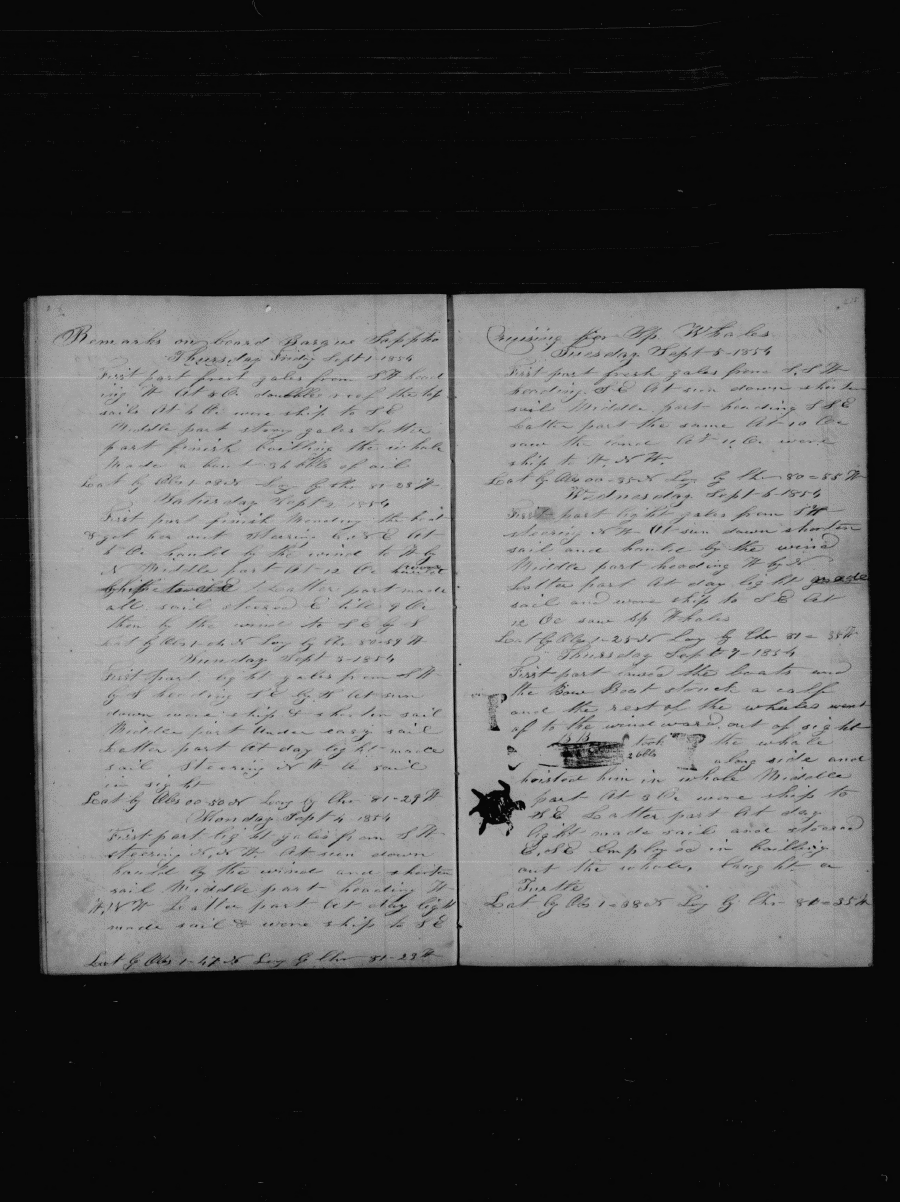 Remarks on board Barque Sappho
Thursday Friday Sept 1-1854
First part fresh gales from SW head
ing W At 4 Oc double reef the top
sails At 6 Oc wore ship to SE
Middle part strong gales Latter
part finish boiling the whale
Made a bout 36 bbls of oil
Lat by Obs 1-08 N Long by Chr 81-28 W
Saturday Sept 2-1854
First part finish mending the boat
& got her out steering E.N.E At
5 Oc hauld by the wind to W by
N Middle part At 12 Oc wore
ship to SE Latter part made
all sail steered E tile 9 Oc
then by the wind to SE by S
Lat by Obs 1-14 N Long by Chr 80-59 W
Sunday Sept 3-1854
First part light gales from SW
by S heading SE by S At sun
down wore ship & shorten sail
Middle part under easy sail
Latter part At day light made
sail steering N W A sail
in sight
Lat by Obs 00-50 N Long by Chr 81-29 W
Monday Sept 4 1854
First part light gales from SW
steering N.N.W. At sun down
hauld by the wind and shorten
sail Middle part heading W
W.N.W Latter part At day light
made sail & wore ship to SE
Lat by Obs 1-47 N Long by Chr 81-29 W
Cruising for Sp Whales
Tuesday Sept 5-1854
First part fresh gales from S.SW
heading S.E At sun down shorten
sail Middle part heading S S E
Latter part the same At 10 Oc
saw the land At 11 Oc wore
ship to W.N.W.
Lat by Obs 00-35 N Long by Chr 80-55 W
Wednesday Sept 6-1854
First part light gales from SW
steering N W At sun down shorten
sail and hauld by the wind
Middle part heading W by N
Latter part At day light made
sail and wore ship to S E At
12 Oc saw Sp Whales
Lat by Obs 1-25 N Long by Chr 81-38 W
Thursday Sept 7-1854
First part lowerd the boats and
the Bow Boat struck a calf
and the rest of the whales went
of to the windward out of sight
BB took the whale
2 bbls along side and
hoisted him in whole Middle
part At 8 Oc wore ship to
W E Latter part At day
light made sail and steered
E.SE Employed in boiling
out the whale, Caught a
Turtle
Lat by Obs 1-38 N Long by Chr 81-35 W